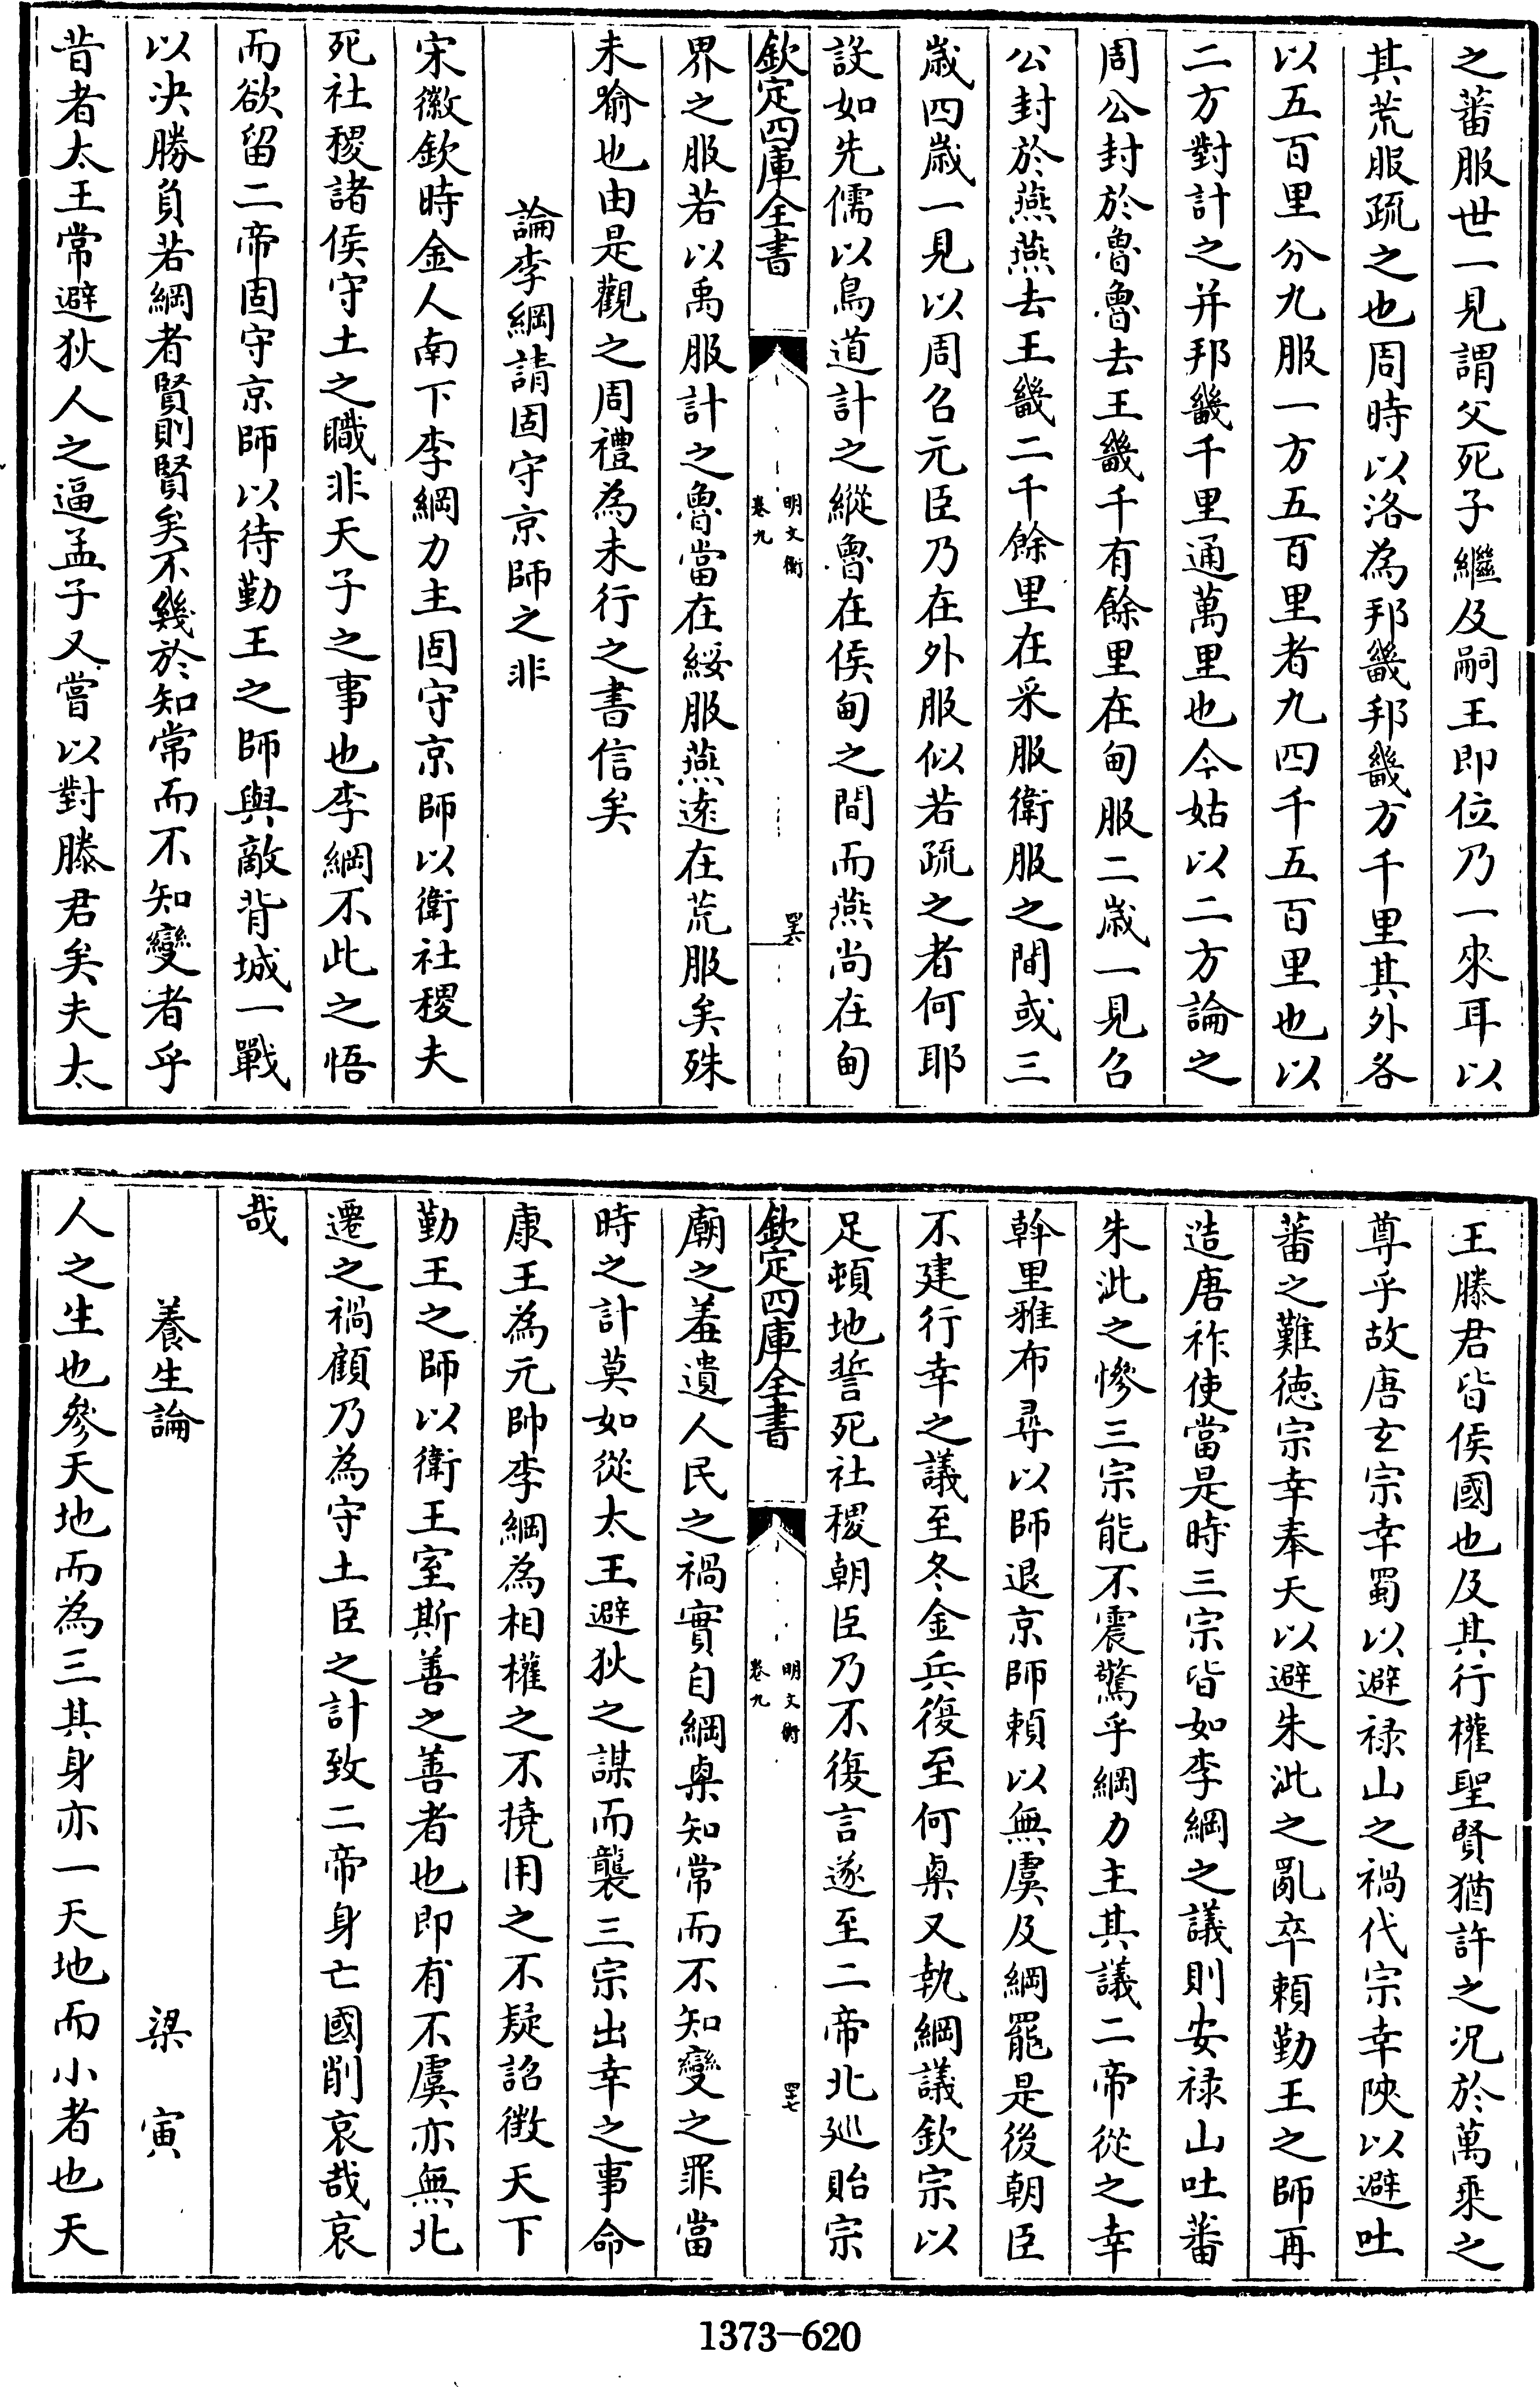 之蕃服世一見謂父死子繼及嗣王即位乃一來耳以
其荒服疏之也周時以洛為邦畿邦畿方千里其外各
以五百里分九服一方五百里者九四千五百里也以
二方對計之并邦畿千里通萬里也今姑以二方論之
周公封於魯魯去王畿千有餘里在甸服二歲一見召
公封於燕燕去王畿二千餘里在采服衛服之間或三
歲四歲一見以周召元臣乃在外服似若疏之者何耶
設如先儒以鳥道計之縱魯在侯甸之間而燕尚在甸
欽定四庫全書
明文衡
卷九
四六
界之服若以禹服計之魯當在綏服燕逺在荒服矣殊
未喻也由是觀之周禮為未行之書信矣
論李綱請固守京師之非
宋徽欽時金人南下李綱力主固守京師以衛社稷夫
死社稷諸侯守土之職非天子之事也李綱不此之悟
而欲留二帝固守京師以待勤王之師與敵背城一戰
以決勝負若綱者賢則賢矣不幾於知常而不知變者乎
昔者太王常避狄人之逼孟子又嘗以對滕君矣夫太
王滕君皆侯國也及其行權聖賢猶許之況於萬乘之
尊乎故唐玄宗幸蜀以避禄山之禍代宗幸陜以避吐
蕃之難徳宗幸奉天以避朱泚之亂卒賴勤王之師再
造唐祚使當是時三宗皆如李綱之議則安禄山吐蕃
朱泚之慘三宗能不震驚乎綱力主其議二帝從之幸
幹里雅布尋以師退京師賴以無虞及綱罷是後朝臣
不建行幸之議至冬金兵復至何㮚又執綱議欽宗以
足頓地誓死社稷朝臣乃不復言遂至二帝北廵貽宗
欽定四庫全書
明文衡
卷九
四七
廟之羞遺人民之禍實自綱㮚知常而不知變之罪當
時之計莫如從太王避狄之謀而襲三宗出幸之事命
康王為元帥李綱為相權之不撓用之不疑詔徴天下
勤王之師以衛王室斯善之善者也即有不虞亦無北
遷之禍顧乃為守土臣之計致二帝身亡國削哀哉哀
哉
養生論　梁寅
人之生也參天地而為三其身亦一天地而小者也天
1373-620